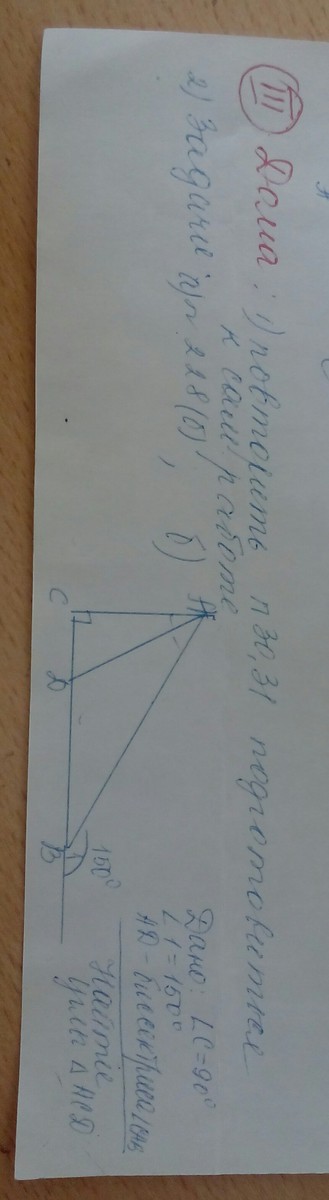 III Дома: 1) повторить п 30,31 подготовиться
к сам/работе
2) Задачи а) n 228(б), б)
A
C
D
B
150°
Дано: ∠C=90°
∠1=150°
AD-биссектриса
Найти
углы △ ACD